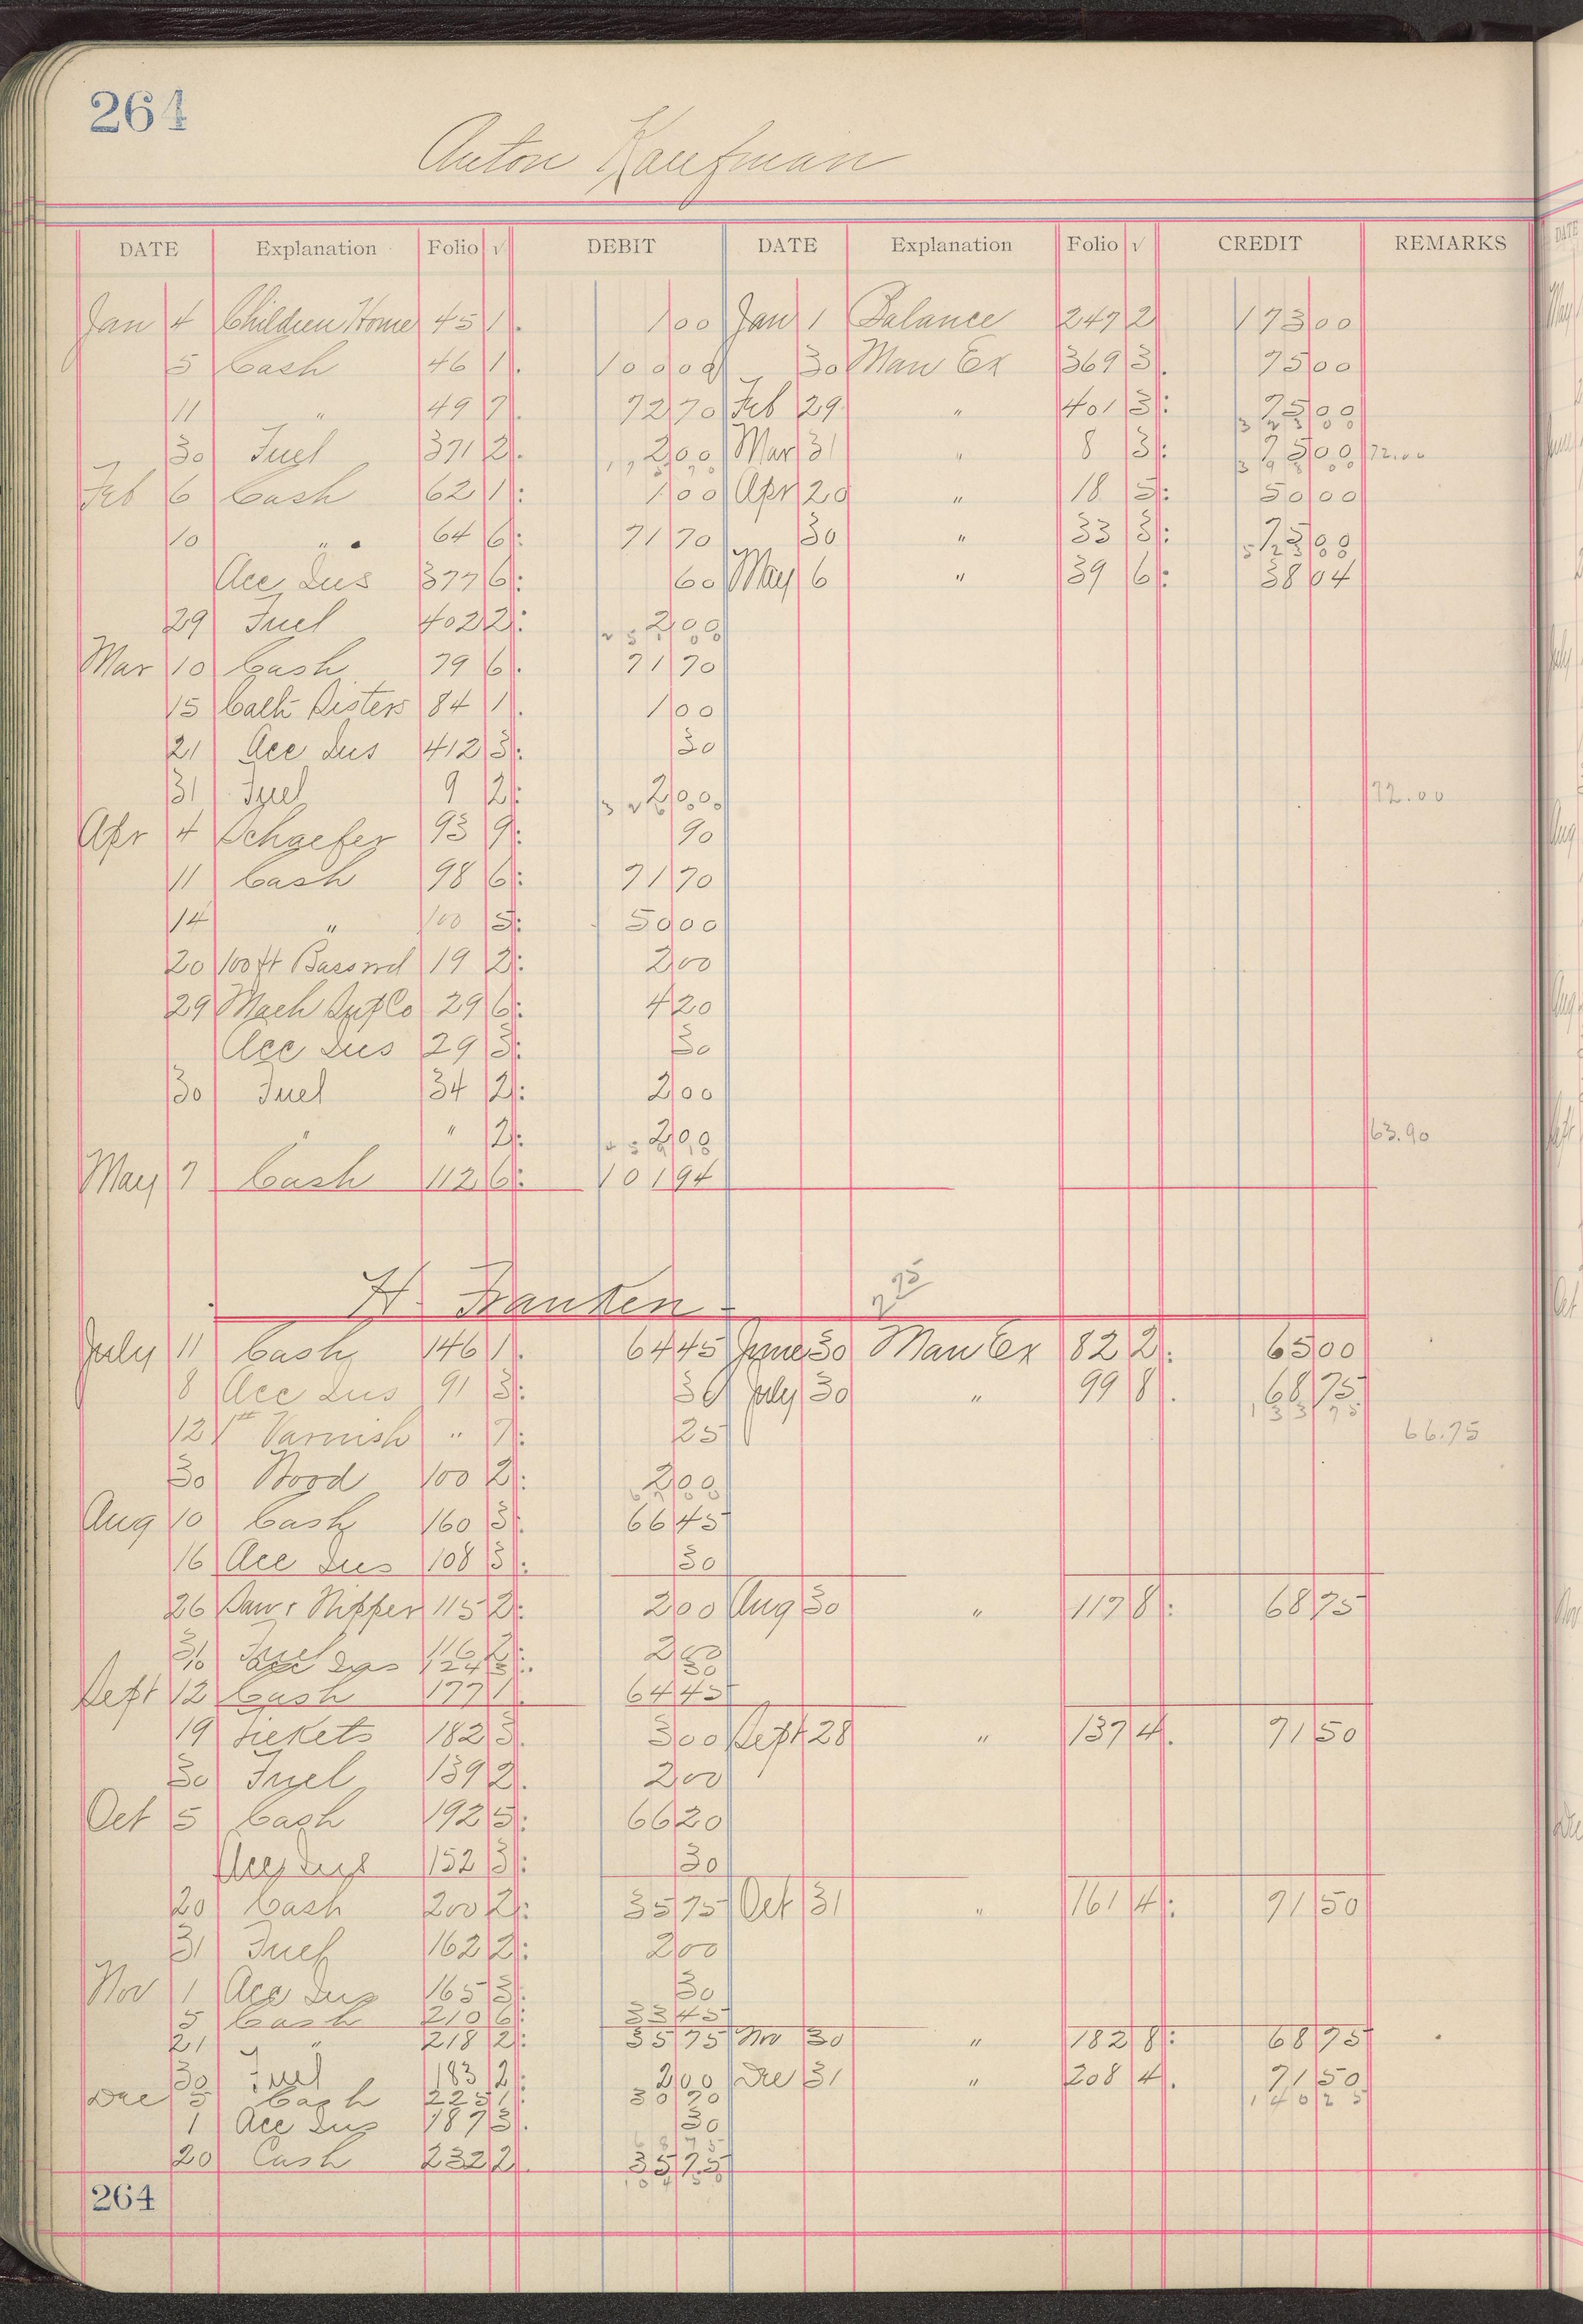 264
Anton Kaufman
DATE Explanation Folio √ DEBIT DATE Explanation Folio √ CREDIT REMARKS
Jan 4 Children Home 45 1 1 00 Jan 1 Balance 247 2 173 00
5 Cash 46 1 100 00 30 Man Ex 369 3 75 00
11 " 49 7 72 70 Feb 29 " 401 3 75 00
30 Fuel 371 2 2 00 Mar 31 " 8 3 75 00 72.00
Feb 6 Cash 62 1 1 00 Apr 20 " 18 5 50 00
10 " 64 6 71 70 30 " 33 3 75 00
Acc Ins 377 6 60 May 6 " 39 6 38 04
29 Fuel 402 2 2 00
Mar 10 Cash 79 6 71 70
15 Cath Sisters 84 1 1 00
21 Acc Ins 412 3 30
31 Fuel 9 2 2 00 72.00
Apr 4 Schaefer 93 9 90
11 Cash 98 6 71 70
14 " 100 5 50 00
20 100 ft Basswd 19 2 2 00
29 Mach Sup Co 29 6 4 20
Acc Ins 29 3 30
30 Fuel 34 2 2 00
" " 2 2 00 63.90
May 7 Cash 112 6 101 94
H. Franken
July 11 Cash 146 1 64 45 June 30 Man Ex 82 2 65 00
8 Acc Ins 91 3 30 July 30 " 99 8 68 75
133 75
12 1 Varnish " 7 25 66.75
30 Wood 100 2 2 00
Aug 10 Cash 160 3 66 45
16 Acc Ins 108 3 30
26 Saw & Nipper 115 2 2 00 Aug 30 " 117 8 68 75
31 Fuel 116 2 2 00
10 Acc Ins 124 3 30
Sept 12 Cash 177 1 64 45
19 Tickets 182 3 3 00 Sept 28 " 137 4 71 50
30 Fuel 139 2 2 00
Oct 5 Cash 192 5 66 20
Acc Ins 152 3 30
20 Cash 200 2 35 75 Oct 31 " 161 4 71 50
31 Fuel 162 2 2 00
Nov 1 Acc Ins 165 3 30
5 Cash 210 6 33 45
21 " 218 2 35 75 Nov 30 " 182 8 68 75
30 Fuel 183 2 2 00 Dec 31 " 208 4 71 50
140 25
Dec 5 Cash 225 1 30 70
1 Acc Ins 187 3 30
20 Cash 232 2 35 75
264